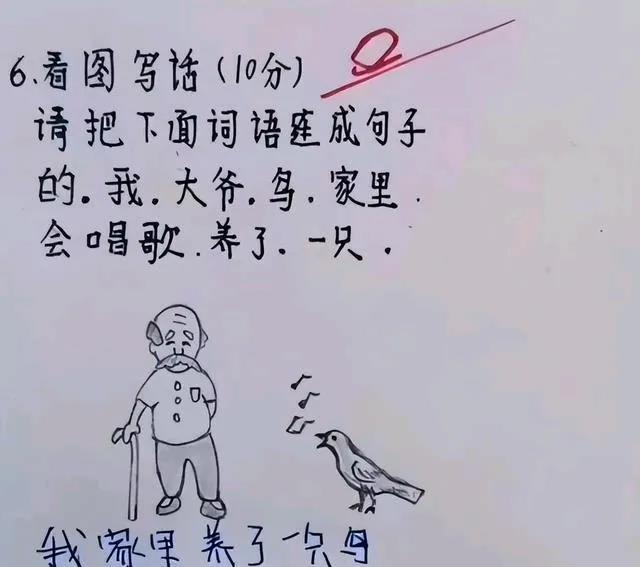 6.看图写话(10分)
请把下面词语连成句子
的.我.大爷.鸟.家里.
会唱歌.养了.一只.
我家里养了一只鸟